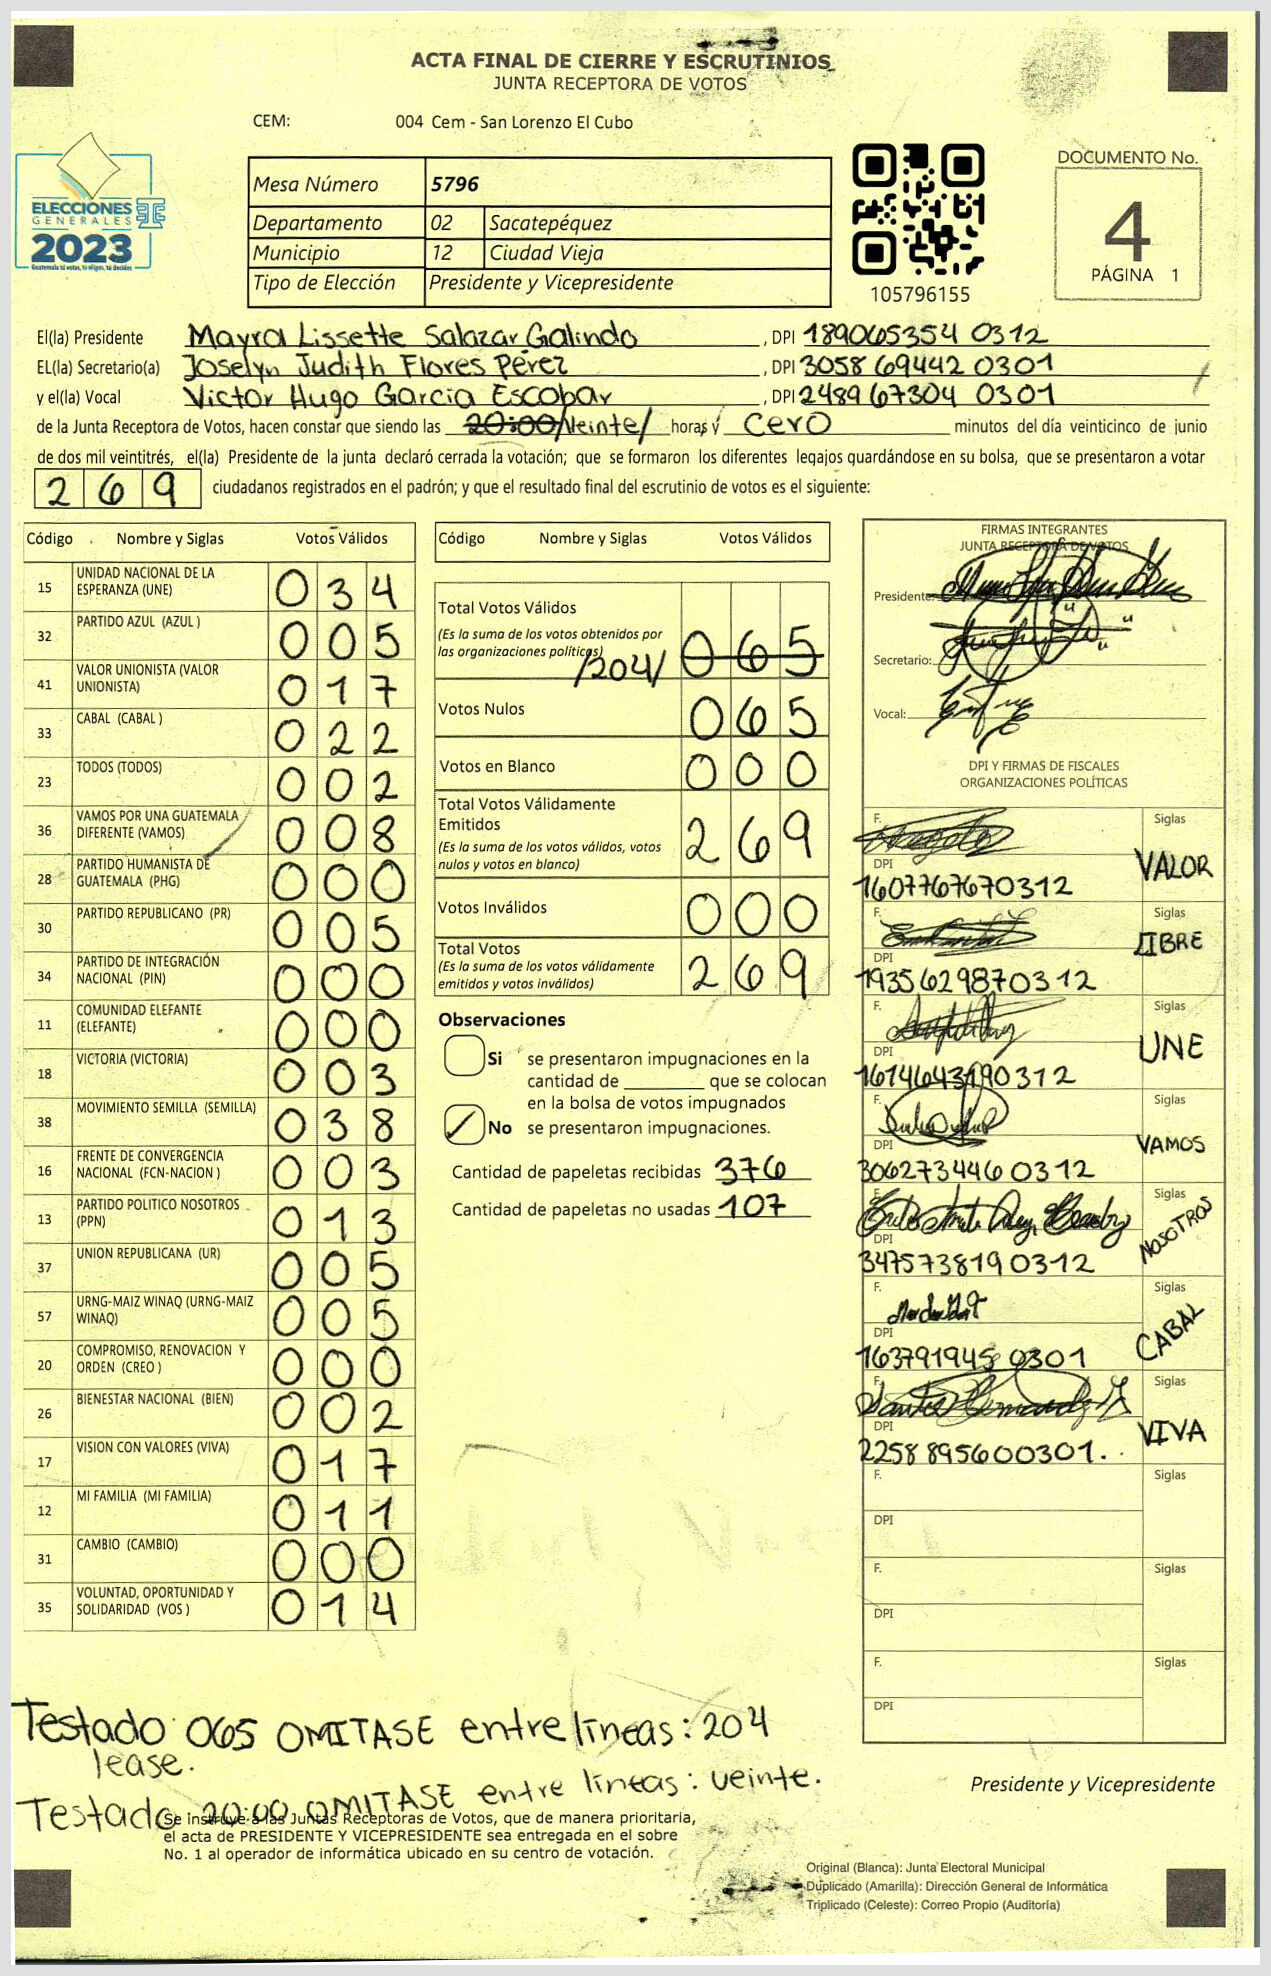 ACTA FINAL DE CIERRE Y ESCRUTINIOS
JUNTA RECEPTORA DE VOTOS
CEM: 004 Cem - San Lorenzo El Cubo
ELECCIONES
GENERALES
2023
Guatemala tú votas, tú eliges, tú decides
Mesa Número 5796
Departamento 02 Sacatepéquez
Municipio 12 Ciudad Vieja
Tipo de Elección Presidente y Vicepresidente
105796155
DOCUMENTO No.
4
PÁGINA 1
El(la) Presidente Mayra Lissette Salazar Galindo, DPI 189065354 0312
EL(la) Secretario(a) Joselyn Judith Flores Pérez, DPI 3058 69442 0301
y el(la) Vocal Victor Hugo Garcia Escobar, DPI 2489 67304 0301
de la Junta Receptora de Votos, hacen constar que siendo las 20:00/Veinte/ horas y cero minutos del día veinticinco de junio
de dos mil veintitrés, el(la) Presidente de la junta declaró cerrada la votación; que se formaron los diferentes legajos quardándose en su bolsa, que se presentaron a votar
269 ciudadanos registrados en el padrón; y que el resultado final del escrutinio de votos es el siguiente:
Código Nombre y Siglas Votos Válidos
15 UNIDAD NACIONAL DE LA ESPERANZA (UNE) 034
32 PARTIDO AZUL (AZUL ) 005
41 VALOR UNIONISTA (VALOR UNIONISTA) 017
33 CABAL (CABAL ) 022
23 TODOS (TODOS) 002
36 VAMOS POR UNA GUATEMALA DIFERENTE (VAMOS) 008
28 PARTIDO HUMANISTA DE GUATEMALA (PHG) 000
30 PARTIDO REPUBLICANO (PR) 005
34 PARTIDO DE INTEGRACIÓN NACIONAL (PIN) 000
11 COMUNIDAD ELEFANTE (ELEFANTE) 000
18 VICTORIA (VICTORIA) 003
38 MOVIMIENTO SEMILLA (SEMILLA) 038
16 FRENTE DE CONVERGENCIA NACIONAL (FCN-NACION ) 003
13 PARTIDO POLITICO NOSOTROS (PPN) 013
37 UNION REPUBLICANA (UR) 005
57 URNG-MAIZ WINAQ (URNG-MAIZ WINAQ) 005
20 COMPROMISO, RENOVACION Y ORDEN (CREO ) 000
26 BIENESTAR NACIONAL (BIEN) 002
17 VISION CON VALORES (VIVA) 017
12 MI FAMILIA (MI FAMILIA) 011
31 CAMBIO (CAMBIO) 000
35 VOLUNTAD, OPORTUNIDAD Y SOLIDARIDAD (VOS ) 014
Código Nombre y Siglas Votos Válidos
Total Votos Válidos
(Es la suma de los votos obtenidos por
las organizaciones políticas) /204/ 065
Votos Nulos 065
Votos en Blanco 000
Total Votos Válidamente
Emitidos
(Es la suma de los votos válidos, votos
nulos y votos en blanco) 269
Votos Inválidos 000
Total Votos
(Es la suma de los votos válidamente
emitidos y votos inválidos) 269
Observaciones
Si se presentaron impugnaciones en la
cantidad de ________ que se colocan
en la bolsa de votos impugnados
No se presentaron impugnaciones.
Cantidad de papeletas recibidas 376
Cantidad de papeletas no usadas 107
FIRMAS INTEGRANTES
JUNTA RECEPTORA DE VOTOS
Presidente:
Secretario:
Vocal:
DPI Y FIRMAS DE FISCALES
ORGANIZACIONES POLÍTICAS
F. Siglas
DPI VALOR
1607767670312
F. Siglas
DPI LIBRE
1935629870312
F. Siglas
DPI UNE
1614643190312
F. Siglas
DPI VAMOS
306273446 0312
F. Siglas
DPI NOSOTROS
347573819 0312
F. Siglas
DPI CABAL
163791945 0301
F. Siglas
DPI VIVA
2258895600301.
F. Siglas
DPI
F. Siglas
DPI
F. Siglas
DPI
Testado 065 OMITASE entre líneas: 204
lease.
Testado 20:00 OMITASE entre líneas: veinte.
Presidente y Vicepresidente
Se instruye a las Juntas Receptoras de Votos, que de manera prioritaria,
el acta de PRESIDENTE Y VICEPRESIDENTE sea entregada en el sobre
No. 1 al operador de informática ubicado en su centro de votación.
Original (Blanca): Junta Electoral Municipal
Duplicado (Amarilla): Dirección General de Informática
Triplicado (Celeste): Correo Propio (Auditoría)